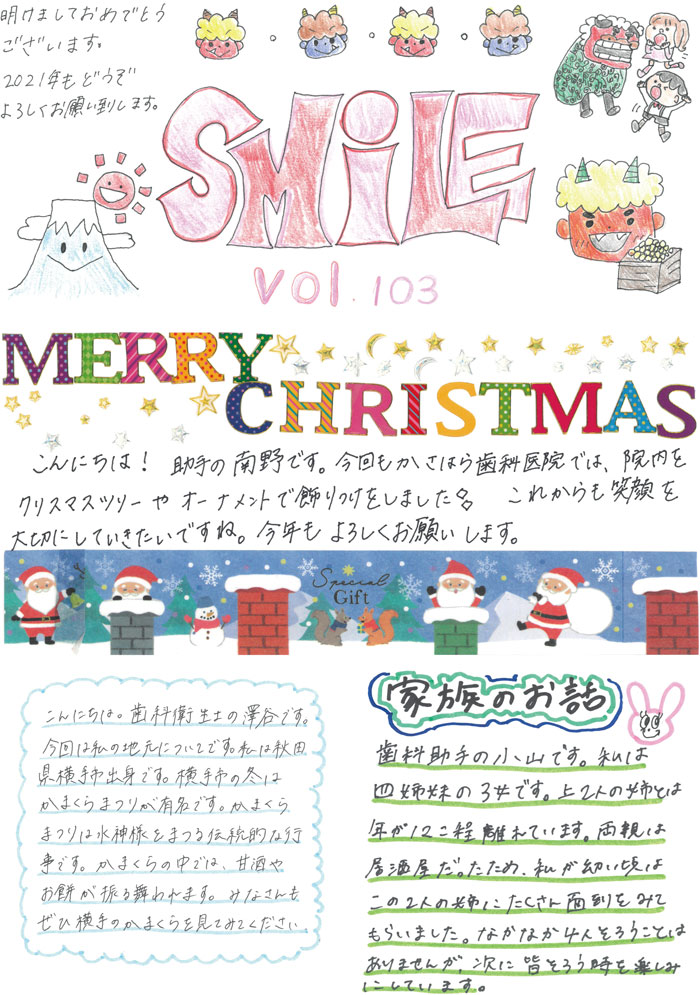 明けましておめでとう
ございます。
2021年もどうぞ
よろしくお願い致します。
SMiLE
vol.103
MERRY
CHRISTMAS
こんにちは! 助手の南野です。今回もかさはら歯科医院では、院内を
クリスマスツリーやオーナメントで飾りつけをしました。 これからも笑顔を
大切にしていきたいですね。今年もよろしくお願いします。
Special
Gift
こんにちは。歯科衛生士の澤谷です。
今回は私の地元についてです。私は秋田
県横手市出身です。横手市の冬は
かまくらまつりが有名です。かまくら
まつりは水神様をまつる伝統的な行
事です。かまくらの中では、甘酒や
お餅が振る舞われます。みなさんも
ぜひ横手のかまくらを見てみてください。
家族のお話
歯科助手の小山です。私は
四姉妹の3女です。上2人の姉とは
年が12こ程離れています。両親は
居酒屋だったため、私が幼い頃は
この2人の姉にたくさん面倒をみて
もらいました。なかなか4人そろうことは
ありませんが、次に皆そろう時を楽しみ
にしています。